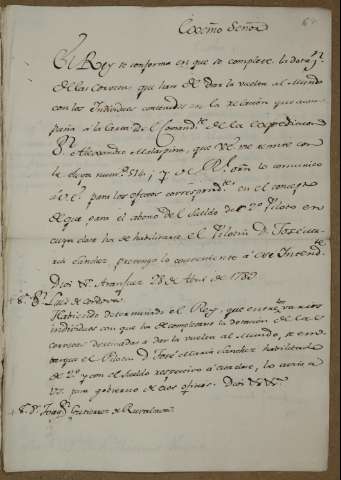 Excmo Señor
El Rey se conforma en que se complete la dotaon.
de las Corvetas que han de dar la vuelta al Mundo
con los Individuos contenidos en la relacion que acom-
paña a la Carta del Comandte. de la expedicion
Dn. Alexandro Malaspina, que VE. me remite con
la suya numo. 514; y de Rl. orn. lo comunico
a VE. para los efectos correspondtes. en el concepto
de que para el abono del sueldo de 2o. Piloto en
cuya clase ha de habilitarse el Pilotin D. Josef Ma-
ria Sanchez prevengo lo conveniente à ese Intendte.
Dios &a. Aranjuez 28 de Abril de 1789
Sr. Dn. Luis de Cordova.
Habiendo determinado el Rey, que entre varios
individuos con que ha de completarse la dotacion de las
corvetas destinadas a dar la vuelta al Mundo, se em-
barque el Pilotin D. Josef Maria Sanchez habilitado
de 2o. y con el sueldo respectivo à esta clase, lo aviso a
VS. para gobierno de esos oficios. Dios &a. &a.
Sr. Dn. Joaqn. Gutierrez de Rubalcava